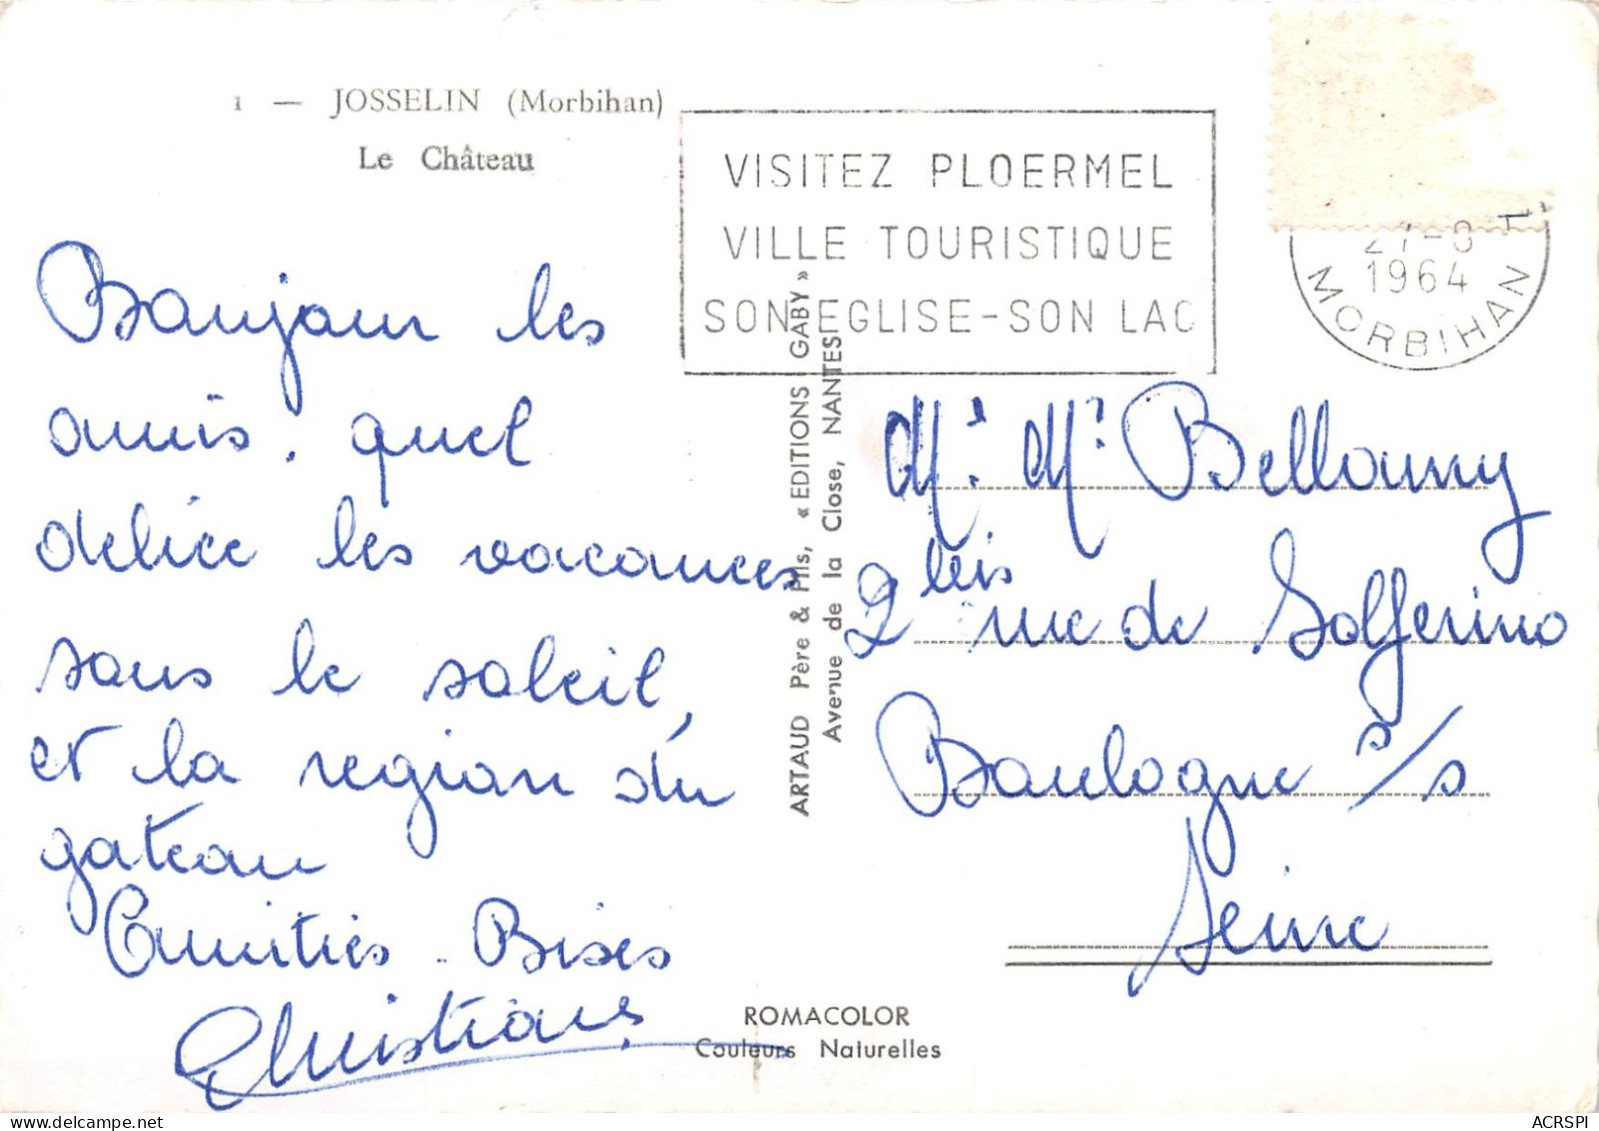 1 — JOSSELIN (Morbihan)
Le Château
VISITEZ PLOERMEL
VILLE TOURISTIQUE
SON EGLISE-SON LAC
1964
MORBIHAN
Bonjour les
amis. quel
delice les vacances
sous le soleil,
et la region du
gateau
Amitiés - Bises
Christians
ARTAUD Père & Fils, « EDITIONS GABY »
Avenue de la Close, NANTES
Mr. Mr. Bellamy
2 bis rue de Solferino
Boulogne s/s
Seine
ROMACOLOR
Couleurs Naturelles
ACRSPI